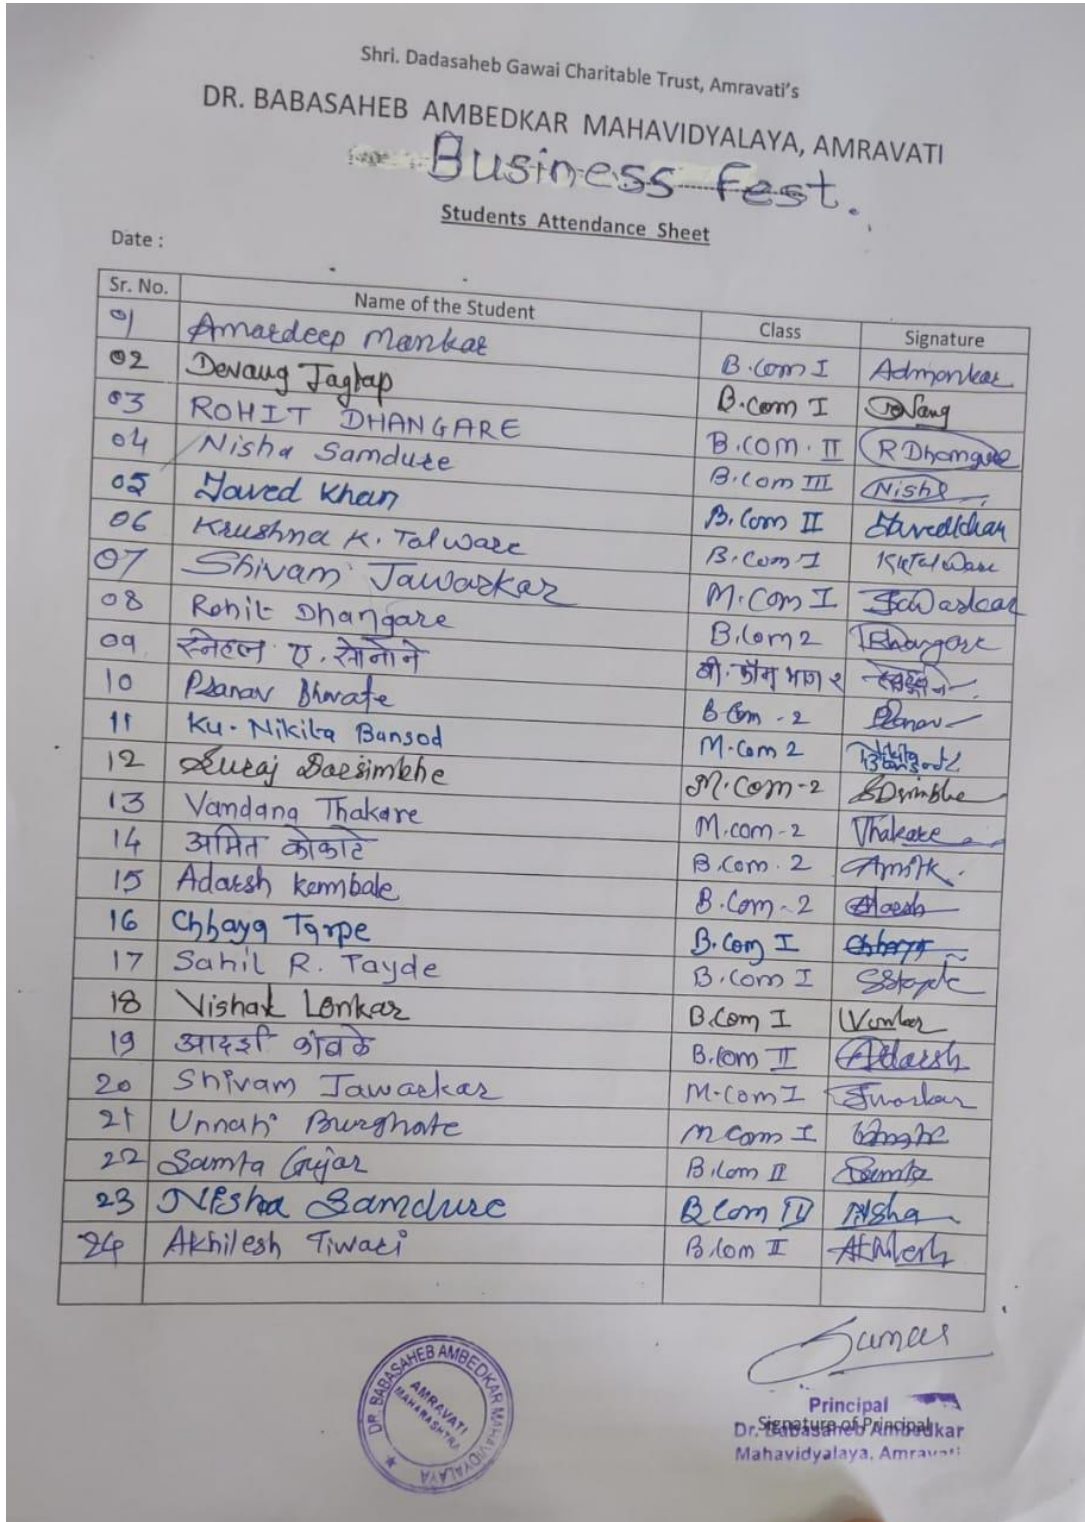 Shri. Dadasaheb Gawai Charitable Trust, Amravati's
DR. BABASAHEB AMBEDKAR MAHAVIDYALAYA, AMRAVATI
Business Fest.
Students Attendance Sheet
Date :
Sr. No. Name of the Student Class Signature
01 Amardeep Mankar B.Com I Admankar
02 Devang Jagtap B.Com I
03 ROHIT DHANGARE B.COM. II R Dhangare
04 Nisha Samdure B.Com III Nisha
05 Javed Khan B.Com II Javedkhan
06 Krushna K. Talware B.Com I KKTalware
07 Shivam Jawarkar M.Com I Jawarkar
08 Rohit Dhangare B.Com 2 Dhangare
09 स्नेहल ए. सोनोने बी. कॉम भाग २
10 Pranav Bhivate B Com - 2 Pranav
11 Ku. Nikita Bansod M.Com 2 Nikita Bansod
12 Suraj Darsimbhe M.Com-2 SDsimbhe
13 Vandana Thakare M.com-2 Thakare
14 अमित कोकाटे B.Com. 2 AmitK.
15 Adarsh Kembale B.Com-2 Adarsh
16 Chhaya Tarpe B.Com I Chhaya
17 Sahil R. Tayde B.Com I
18 Vishal Lonkar B.Com I
19 आदर्श कांबळे B.Com II Adarsh
20 Shivam Jawarkar M.Com I
21 Unnati Burghate M Com I
22 Samta Gujar B.Com II Samta
23 Nisha Samdure B Com III Nisha
24 Akhilesh Tiwari B.Com II Akhilesh
DR. BABASAHEB AMBEDKAR MAHAVIDYALAYA
AMRAVATI
MAHARASHTRA
Principal
Signature of Principal
Dr. Babasaheb Ambedkar
Mahavidyalaya, Amravati